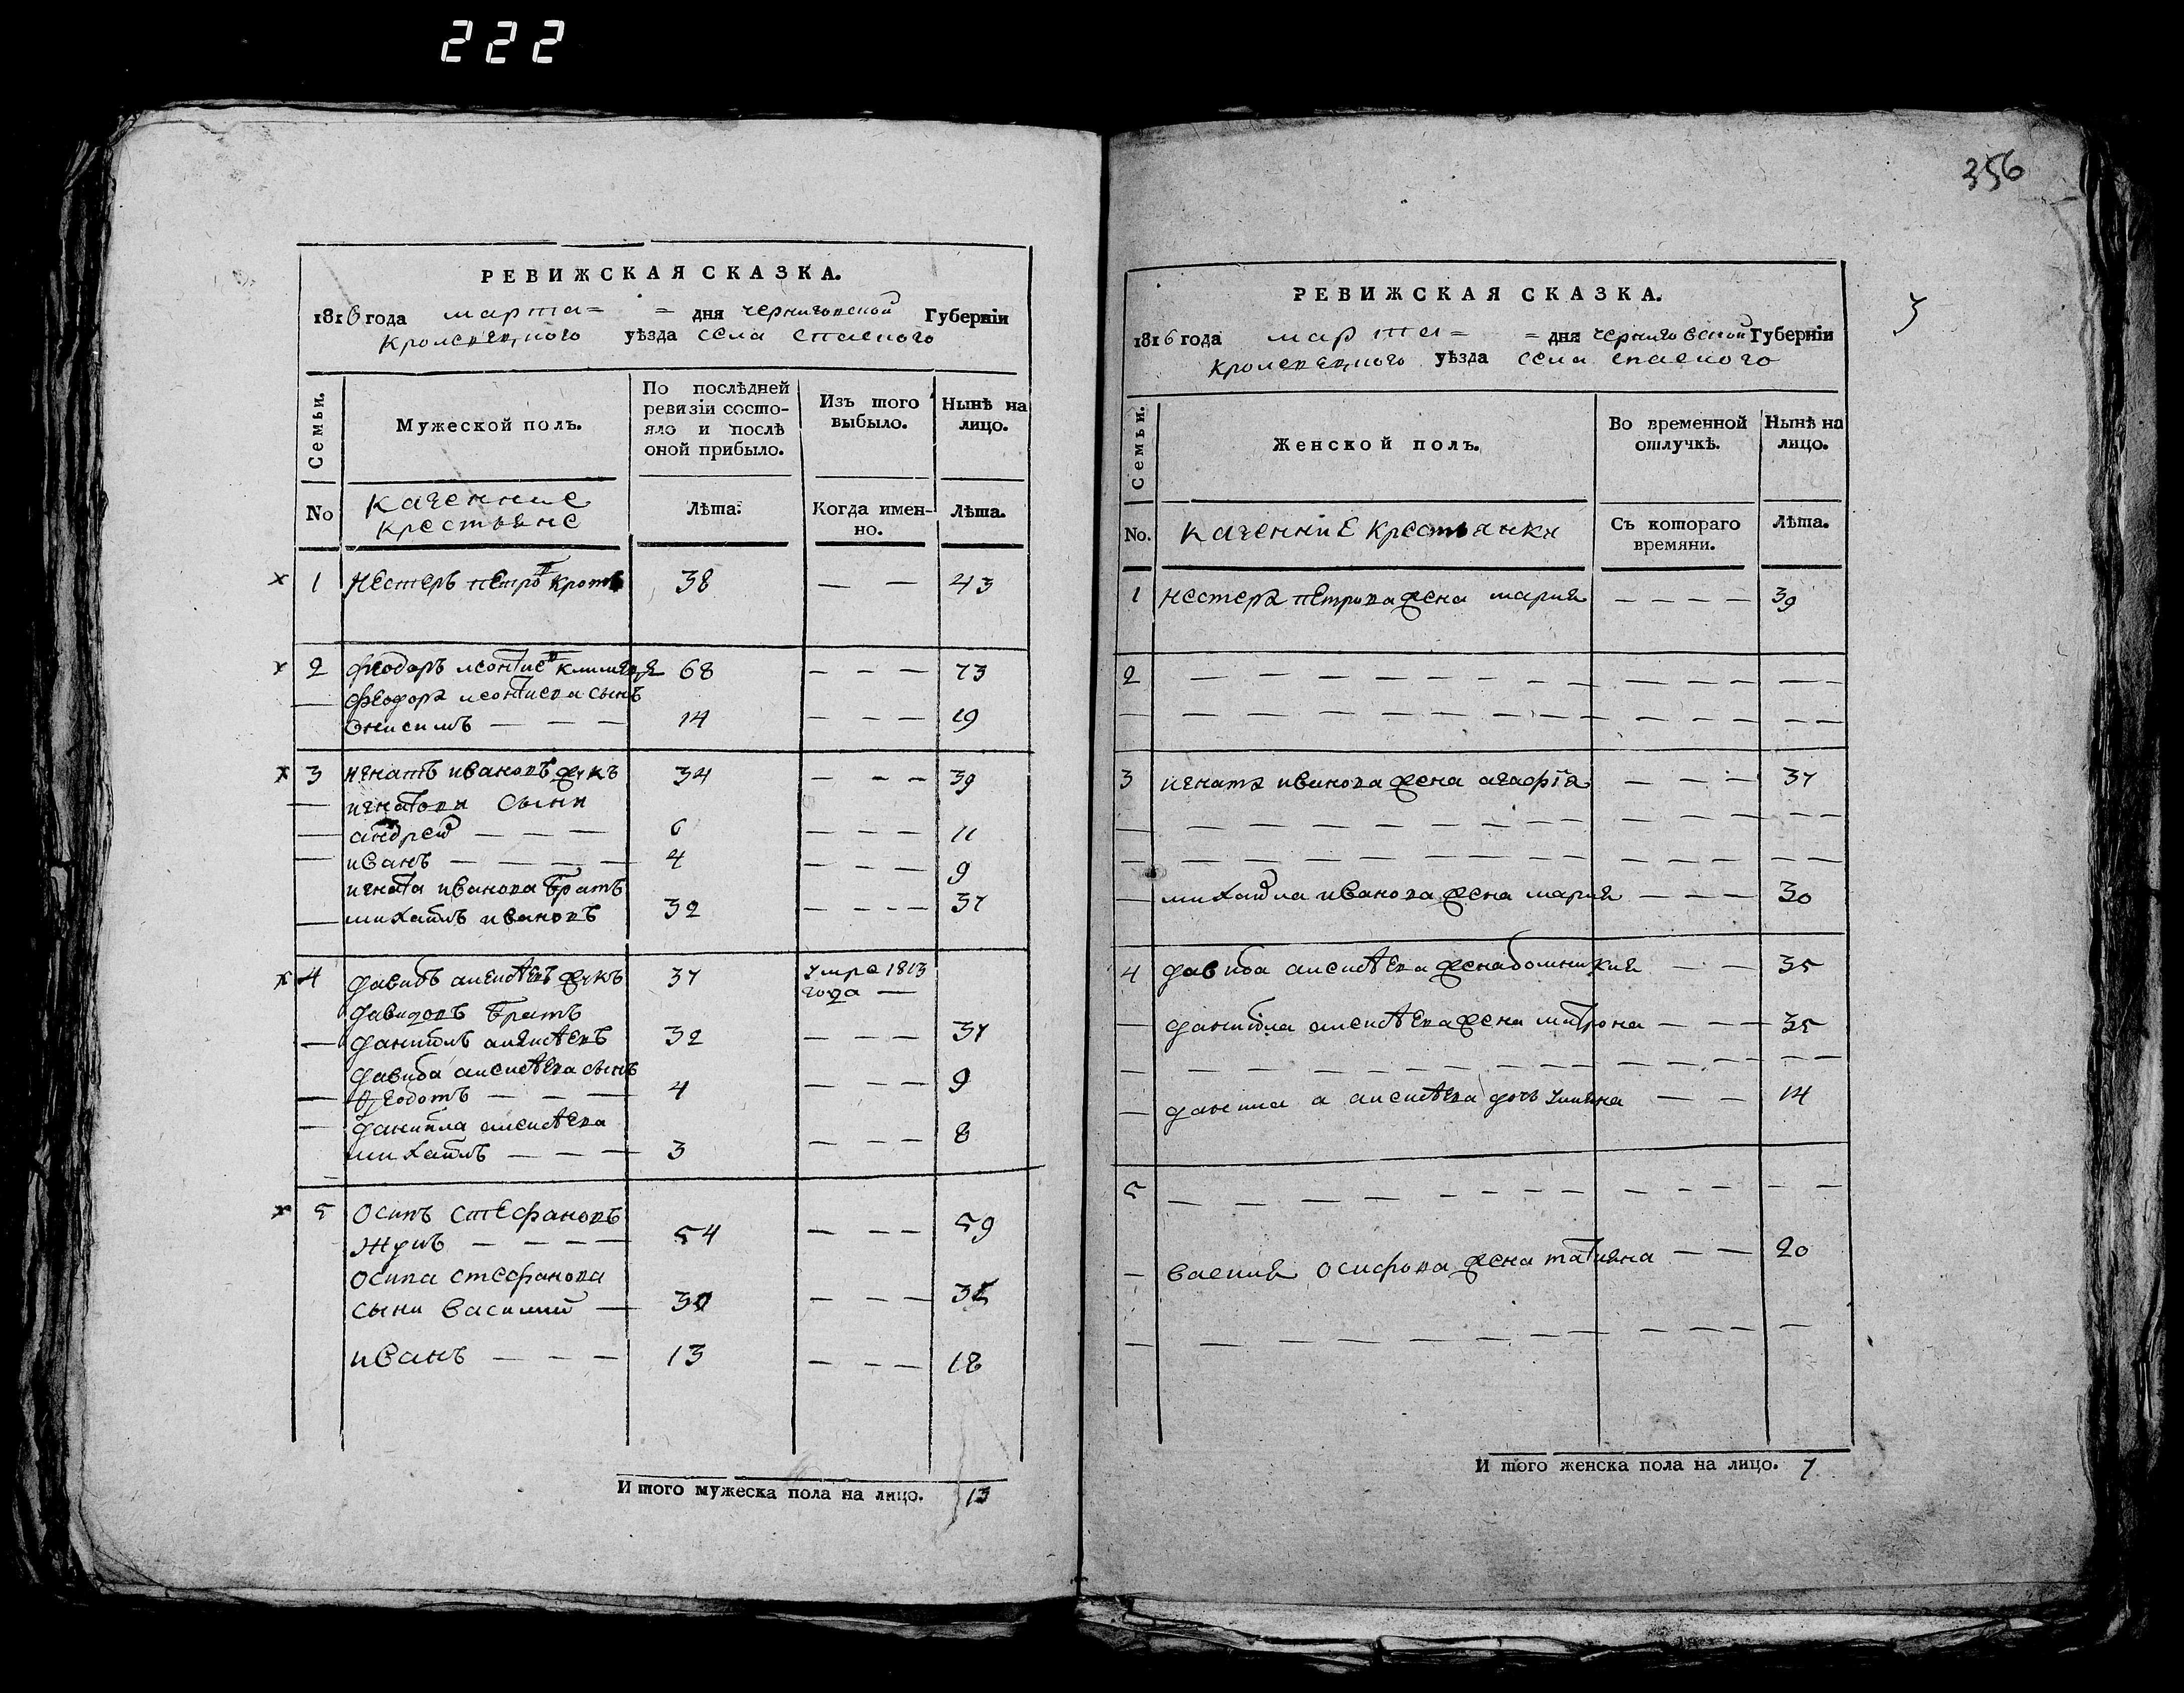 222
РЕВИЖСКАЯ СКАЗКА.
1816 года марта = = дня черниговской Губерніи
Кролевецкого уѣзда села спаского
Семьи.
Мужеской полъ.
По послѣдней ревизіи состояло и послѣ оной прибыло.
Изъ того выбыло.
Нынѣ на лицо.
No
казенние
крестьяне
Лѣта.
Когда именно.
Лѣта.
х 1 Нестеръ петровъ Кротъ 38 — — 43
х 2 Феодоръ леонтиевъ 68 — — — 73
— Феодора леонтиева сынъ
Онисимъ — — — 14 — — — 19
х 3 игнатъ ивановъ жукъ 34 — — — 39
— игнатови сыни
— андрей — — — 6 — — — 11
— иванъ — — — — 4 — — — 9
игната иванова братъ
— михайлъ ивановъ 32 — — — — 37
х 4 давидъ алексѣевъ жукъ 37 умре 1813
года —
давидовъ братъ
— данийлъ алексѣевъ 32 — — — 37
давида алексѣева сынъ
— Федотъ — — — 4 — — — 9
— данийла алексѣева
михайлъ — — — 3 — — — 8
х 5 Осипъ стефановъ
— — — — 54 — — — 59
Осипа стефанова
сыни василий — 30 — — — 35
иванъ — — — 13 — — — 18
И того мужеска пола на лицо. 13
356
3
РЕВИЖСКАЯ СКАЗКА.
1816 года марта = = дня черниговской Губерніи
Кролевецкого уѣзда села спаского
Семьи.
Женской полъ.
Во временной отлучкѣ.
Нынѣ на лицо.
No.
казенние крестьянки
Съ котораго времяни.
Лѣта.
1 нестера петрова жена мария — — — — 39
2
3 игната иванова жена агафія — — — 37
— михайла иванова жена мария — — — 30
4 давида алексѣева жена домникия — — 35
— данийла алексѣева жена матрона — — — 35
— данила алексѣева дочь улияна — — 14
5
— василия осифова жена татияна — — 20
И того женска пола на лицо. 7